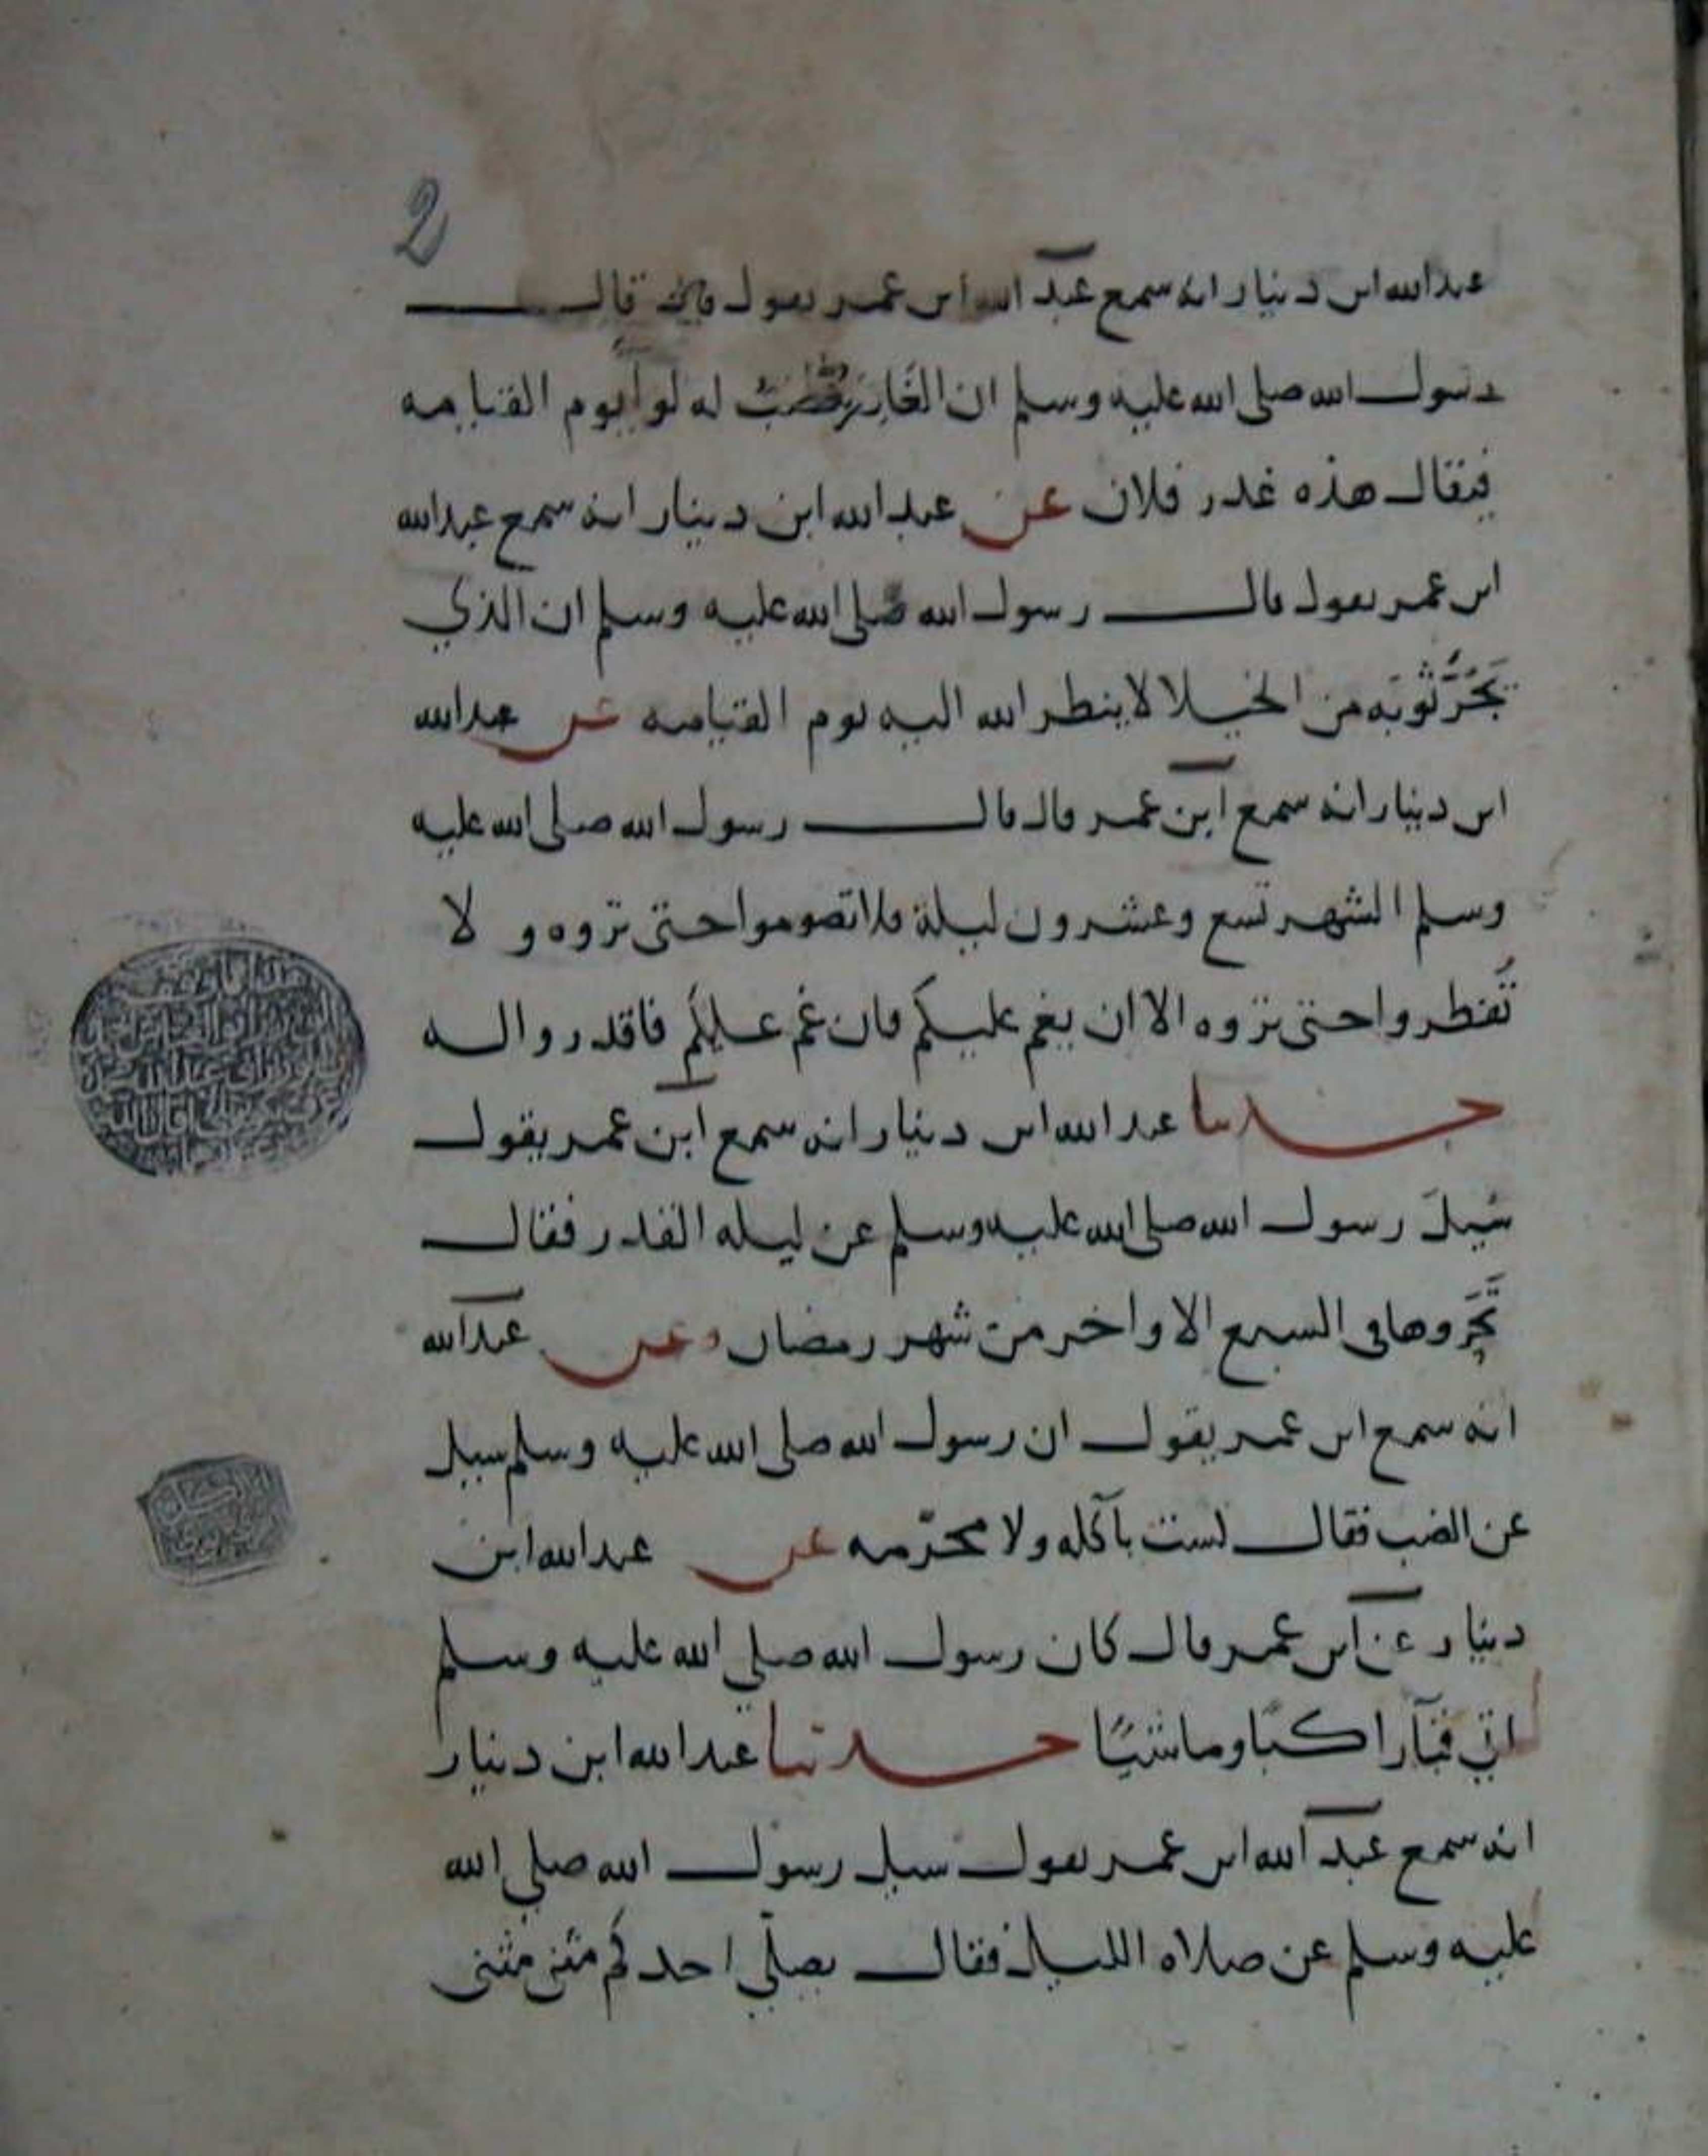 2
عبدالله ابن دينار انه سمع عبد الله ابن عمر يقول قال
رسول الله صلى الله عليه وسلم ان الغادر ينصب له لوا يوم القيامه
فيقال هذه غدر فلان عن عبدالله ابن دينار انه سمع عبدالله
ابن عمر يقول قال رسول الله صلى الله عليه وسلم ان الذي
يَجُرُّ ثوبَه من الخيلا لا ينظر الله اليه يوم القيامه عن عبدالله
ابن دينار انه سمع ابن عمر قال قال رسول الله صلى الله عليه
وسلم الشهر تسع وعشرون ليلة فلا تصوموا حتى تروه و لا
تُفطروا حتى تروه الا ان يغم عليكم فان غم عليكم فاقدروا له
حدثنا عبد الله ابن دينار انه سمع ابن عمر يقول
سُيلَ رسول الله صلى الله عليه وسلم عن ليله القدر فقال
تَحَروها في السبع الاواخر من شهر رمضان وعن عبدالله
انه سمع ابن عمر يقول ان رسول الله صلى الله عليه وسلم سيل
عن الضب فقال لست بآكله ولا محرّمه عن عبدالله ابن
دينار عن ابن عمر قال كان رسول الله صلي الله عليه وسلم
ياتي قبآ راكبًا وماشيًا حدثنا عبدالله ابن دينار
انه سمع عبد الله ابن عمر يقول سيل رسول الله صلي الله
عليه وسلم عن صلاه الليل فقال يصلّي احدكم مثنى مثنى